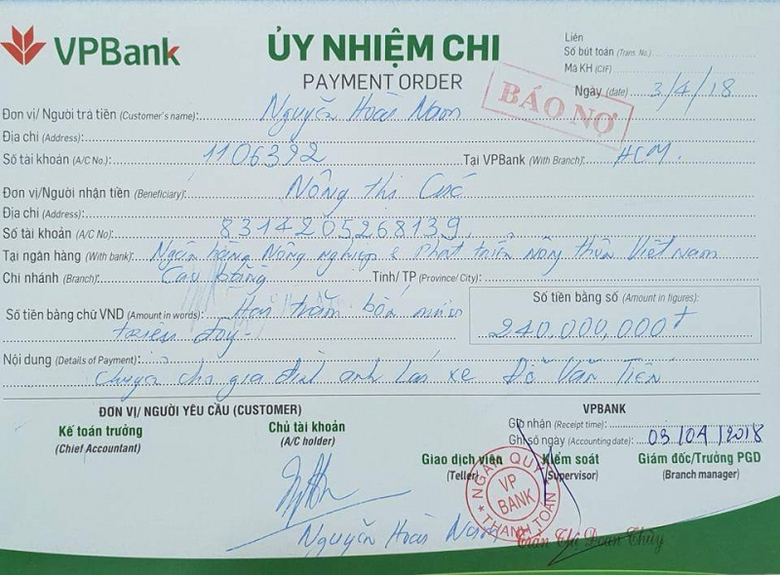 VPBank
ỦY NHIỆM CHI
PAYMENT ORDER
Liên
Số bút toán (Trans. No.)
Mã KH (CIF)
Ngày (date) 3/4/18
BÁO NỢ
Đơn vị/ Người trả tiền (Customer's name): Nguyễn Hoài Nam
Địa chỉ (Address):
Số tài khoản (A/C No.): 1106392 Tại VPBank (With Branch): HCM.
Đơn vị/Người nhận tiền (Beneficiary): Nông thị Cúc
Địa chỉ (Address):
Số tài khoản (A/C No): 8314205268139
Tại ngân hàng (With bank): Ngân hàng Nông nghiệp & Phát triển nông thôn Việt nam
Chi nhánh (Branch): Cao Bằng Tỉnh/ TP (Province/ City):
Số tiền bằng chữ VND (Amount in words): Hai trăm bốn mươi
triệu đồng
Số tiền bằng số (Amount in figures):
240,000,000đ
Nội dung (Details of Payment):
Chuyển cho gia đình anh lái xe Đỗ Văn Tiến
ĐƠN VỊ/ NGƯỜI YÊU CẦU (CUSTOMER)
VPBANK
Kế toán trưởng
(Chief Accountant)
Chủ tài khoản
(A/C holder)
Ghi nhận (Receipt time):
Ghi sổ ngày (Accounting date): 03/04/2018
Giao dịch viên
(Teller)
Kiểm soát
(Supervisor)
Giám đốc/Trưởng PGD
(Branch manager)
NGÂN QUỸ
VP
BANK
THANH TOÁN
Nguyễn Hoài Nam
Trần Thị Đoan Thùy